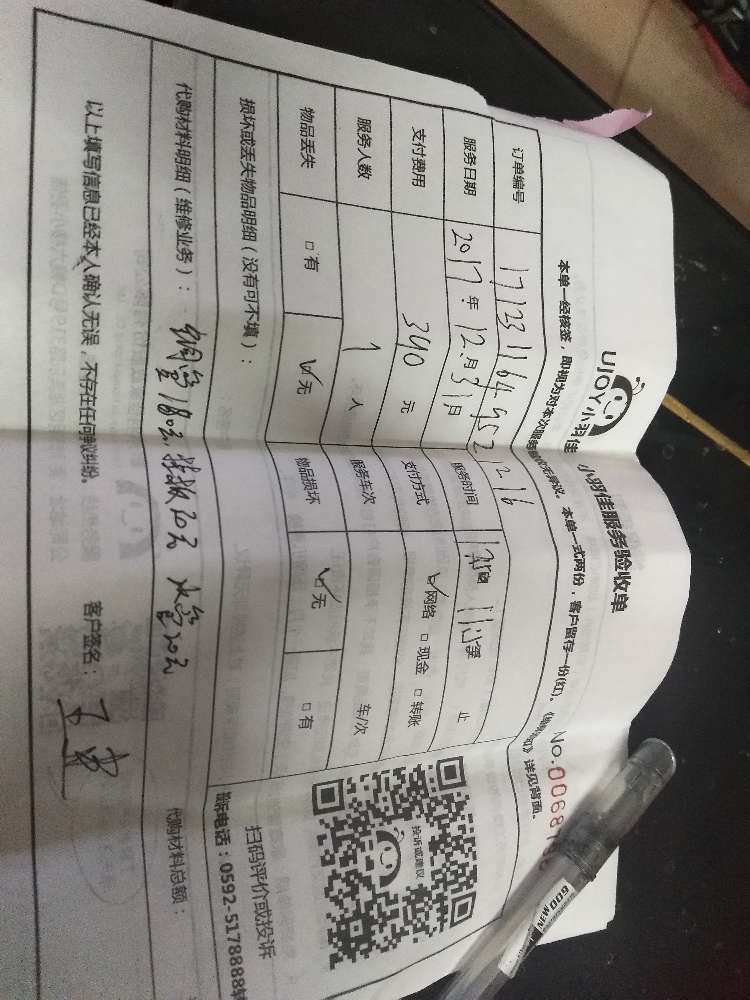 UJOY小羽佳 小羽佳服务验收单
本单一经核签，即视为对本次服务 本单一式两份，客户留存一份(红)。 详见背面。
No.00687
订单编号 1712311649521216
服务日期 2017年12月31日 服务时间 止
支付费用 340元 支付方式 ☑网络 □现金 □转账
服务人数 1人 服务车次 车/次
物品丢失 □有 ☑无 物品损坏 ☑无 □有
损坏或丢失物品明细（没有可不填）：
投诉或建议
扫码评价或投诉
电话：0592-5178888转
代购材料明细（维修业务）： 铜管180元 20元 水管20元
代购材料总额：
以上填写信息已经本人确认无误，不存在任何争议纠纷。 客户签名：
600MEN